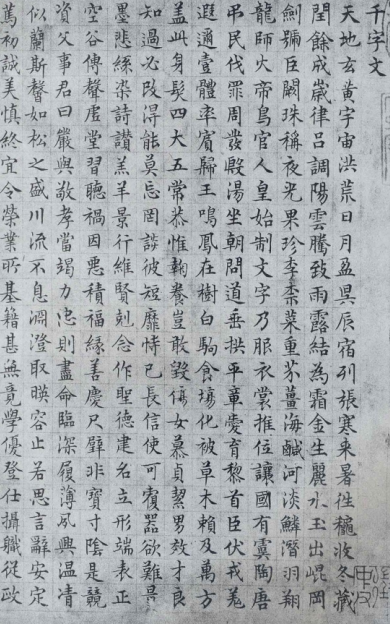 千字文
天地玄黃宇宙洪荒日月盈昃辰宿列張寒来暑徃穐收冬藏
閏餘成歲律呂調陽雲騰致雨露結為霜金生麗水玉出崐岡
劍號巨闕珠稱夜光果珍李柰菜重芥薑海鹹河淡鱗潛羽翔
龍師火帝鳥官人皇始制文字乃服衣裳推位讓國有虞陶唐
弔民伐罪周發殷湯坐朝問道垂拱平章愛育黎首臣伏戎羌
遐邇壹體率賓歸王鳴鳳在樹白駒食場化被草木賴及萬方
蓋此身髮四大五常恭惟鞠養豈敢毀傷女慕貞絜男效才良
知過必改得能莫忘罔談彼短靡恃己長信使可覆器欲難量
墨悲絲染詩讚羔羊景行維賢剋念作聖德建名立形端表正
空谷傳聲虛堂習聽禍因惡積福緣善慶尺璧非寶寸陰是競
資父事君曰嚴與敬孝當竭力忠則盡命臨深履薄夙興温凊
似蘭斯馨如松之盛川流不息淵澄取暎容止若思言辭安定
篤初誠美慎終宜令榮業所基籍甚無竟學優登仕攝職從政